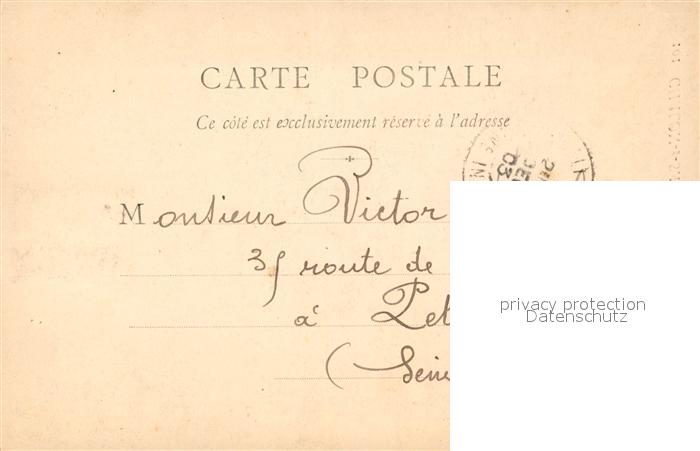 CARTE POSTALE
Ce côté est exclusivement réservé à l'adresse
Monsieur Victor
35 route de
à
privacy protection
Datenschutz